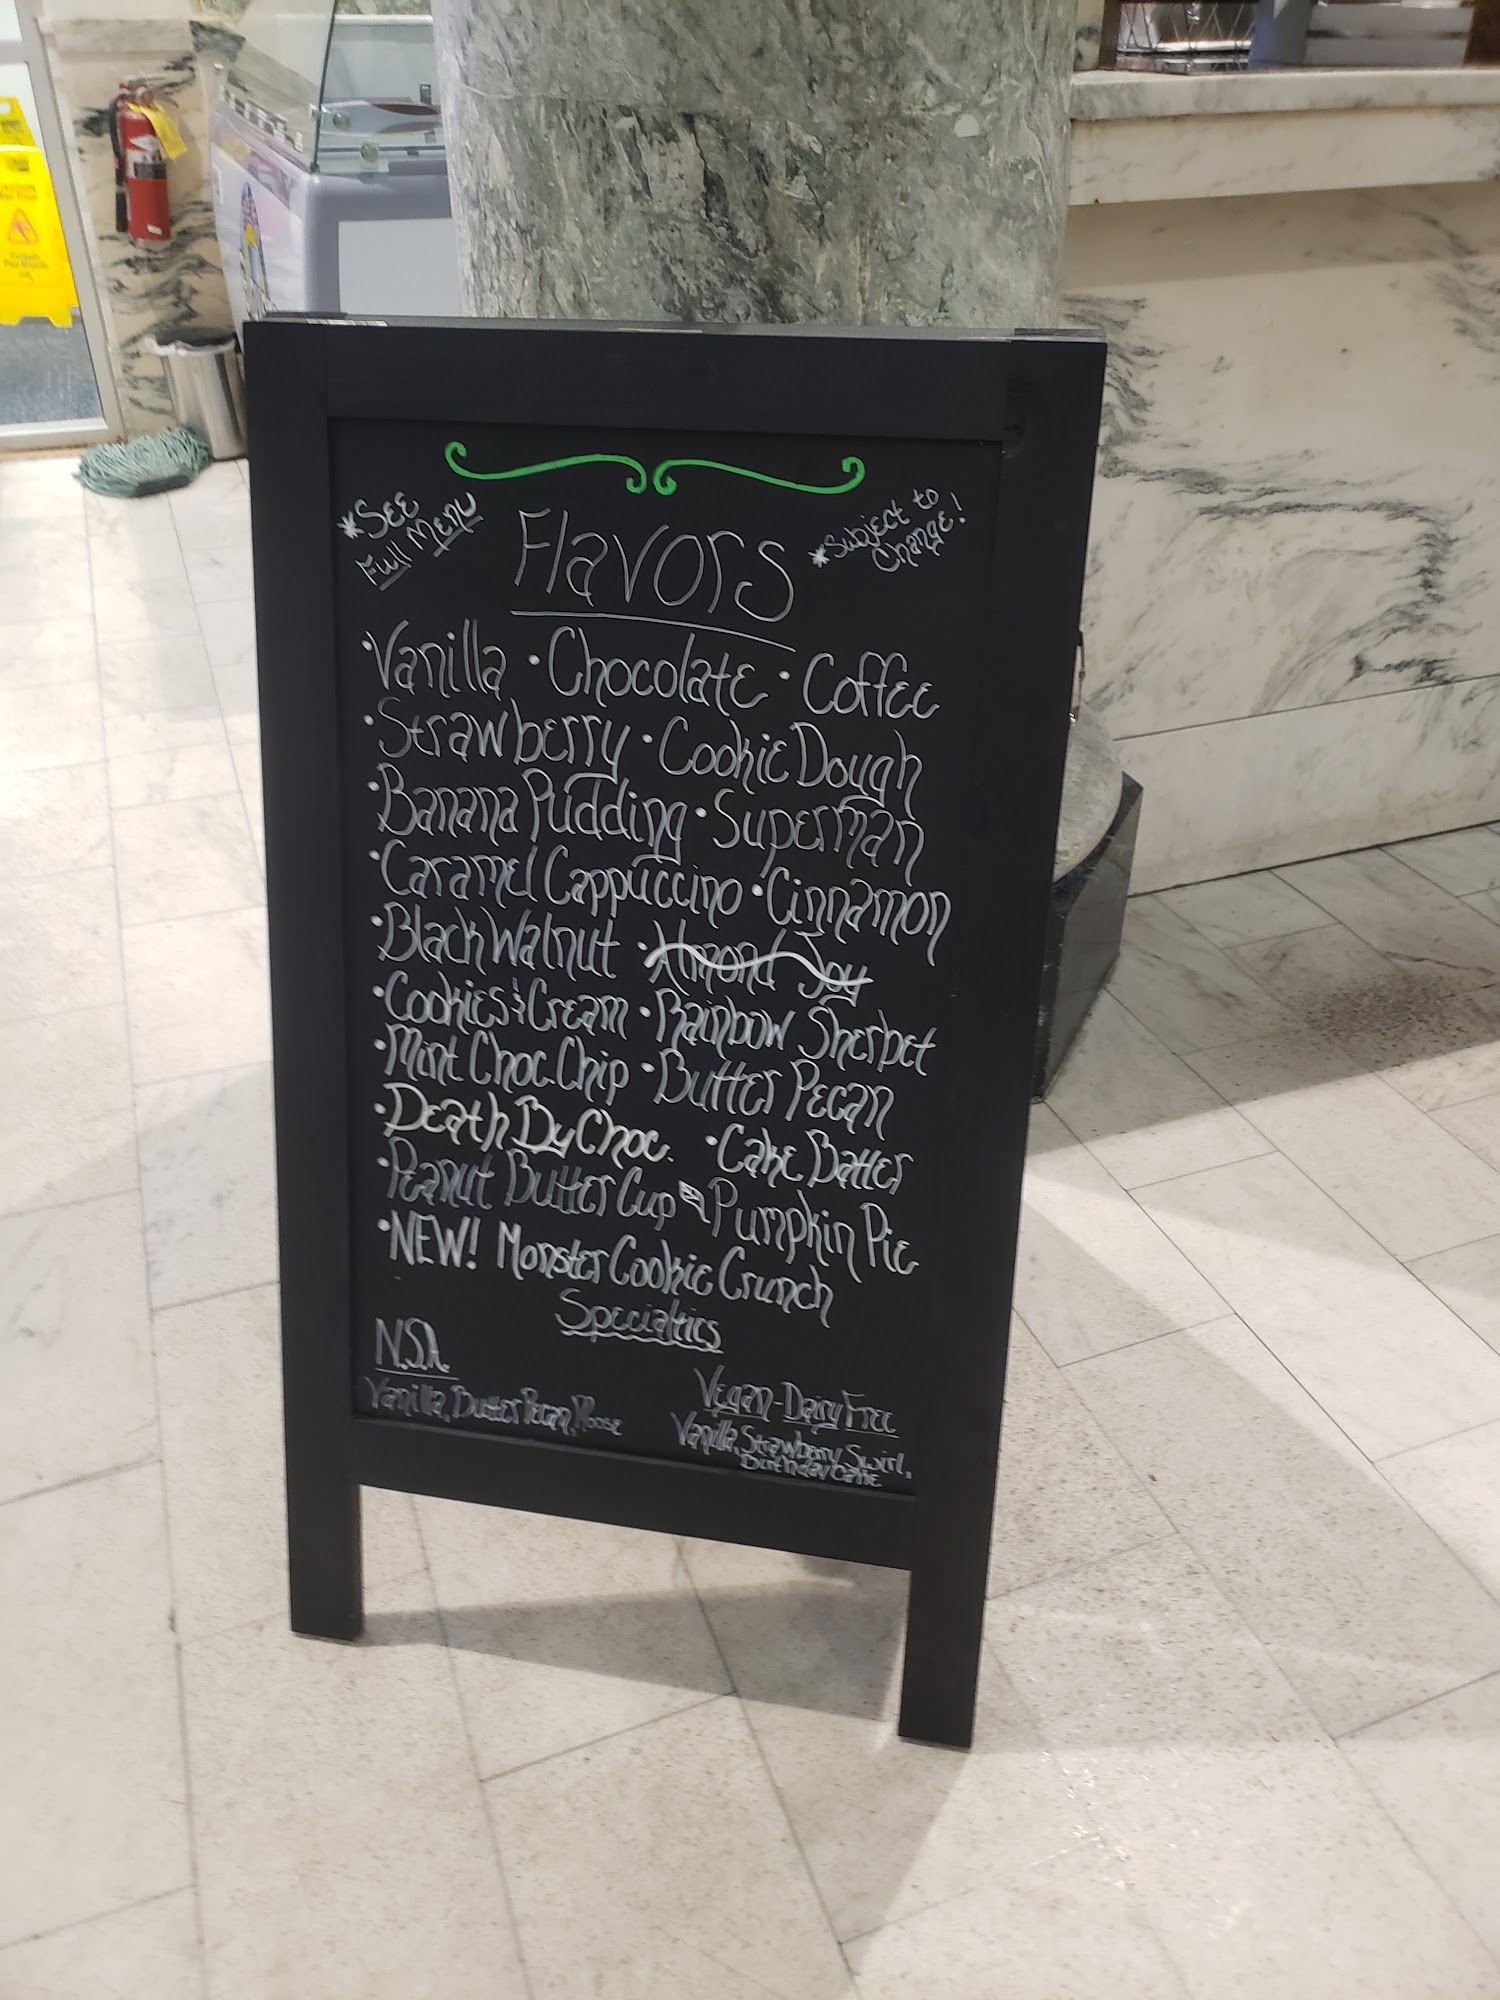 *See
Full Menu
*Subject to
Change!
Flavors
•Vanilla •Chocolate •Coffee
•Strawberry •Cookie Dough
•Banana Pudding •Superman
•Caramel Cappuccino •Cinnamon
•Black Walnut •Almond Joy
•Cookies & Cream •Rainbow Sherbet
•Mint Choc. Chip •Butter Pecan
•Death By Choc. •Cake Batter
•Peanut Butter Cup Pumpkin Pie
•NEW! Monster Cookie Crunch
Specialties
N.S.A.
Vanilla, Butter Pecan, Moose
Vegan-Dairy Free
Vanilla, Strawberry Swirl,
Birthday Cake
CAUTION